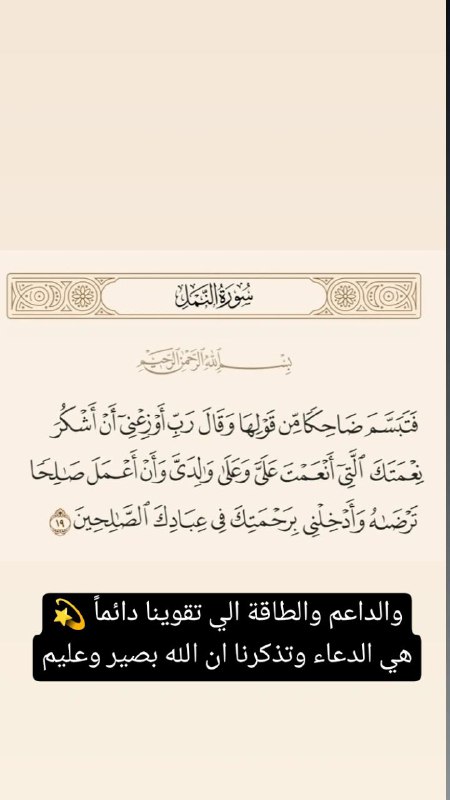 سُورَةُ النَّمْلِ
بِسْمِ اللَّهِ الرَّحْمَٰنِ الرَّحِيمِ
فَتَبَسَّمَ ضَاحِكًا مِّن قَوْلِهَا وَقَالَ رَبِّ أَوْزِعْنِىٓ أَنْ أَشْكُرَ
نِعْمَتَكَ ٱلَّتِىٓ أَنْعَمْتَ عَلَىَّ وَعَلَىٰ وَٰلِدَىَّ وَأَنْ أَعْمَلَ صَـٰلِحًا
تَرْضَىٰهُ وَأَدْخِلْنِى بِرَحْمَتِكَ فِى عِبَادِكَ ٱلصَّـٰلِحِينَ ١٩
والداعم والطاقة الي تقوينا دائماً 💫
هي الدعاء وتذكرنا ان الله بصير وعليم